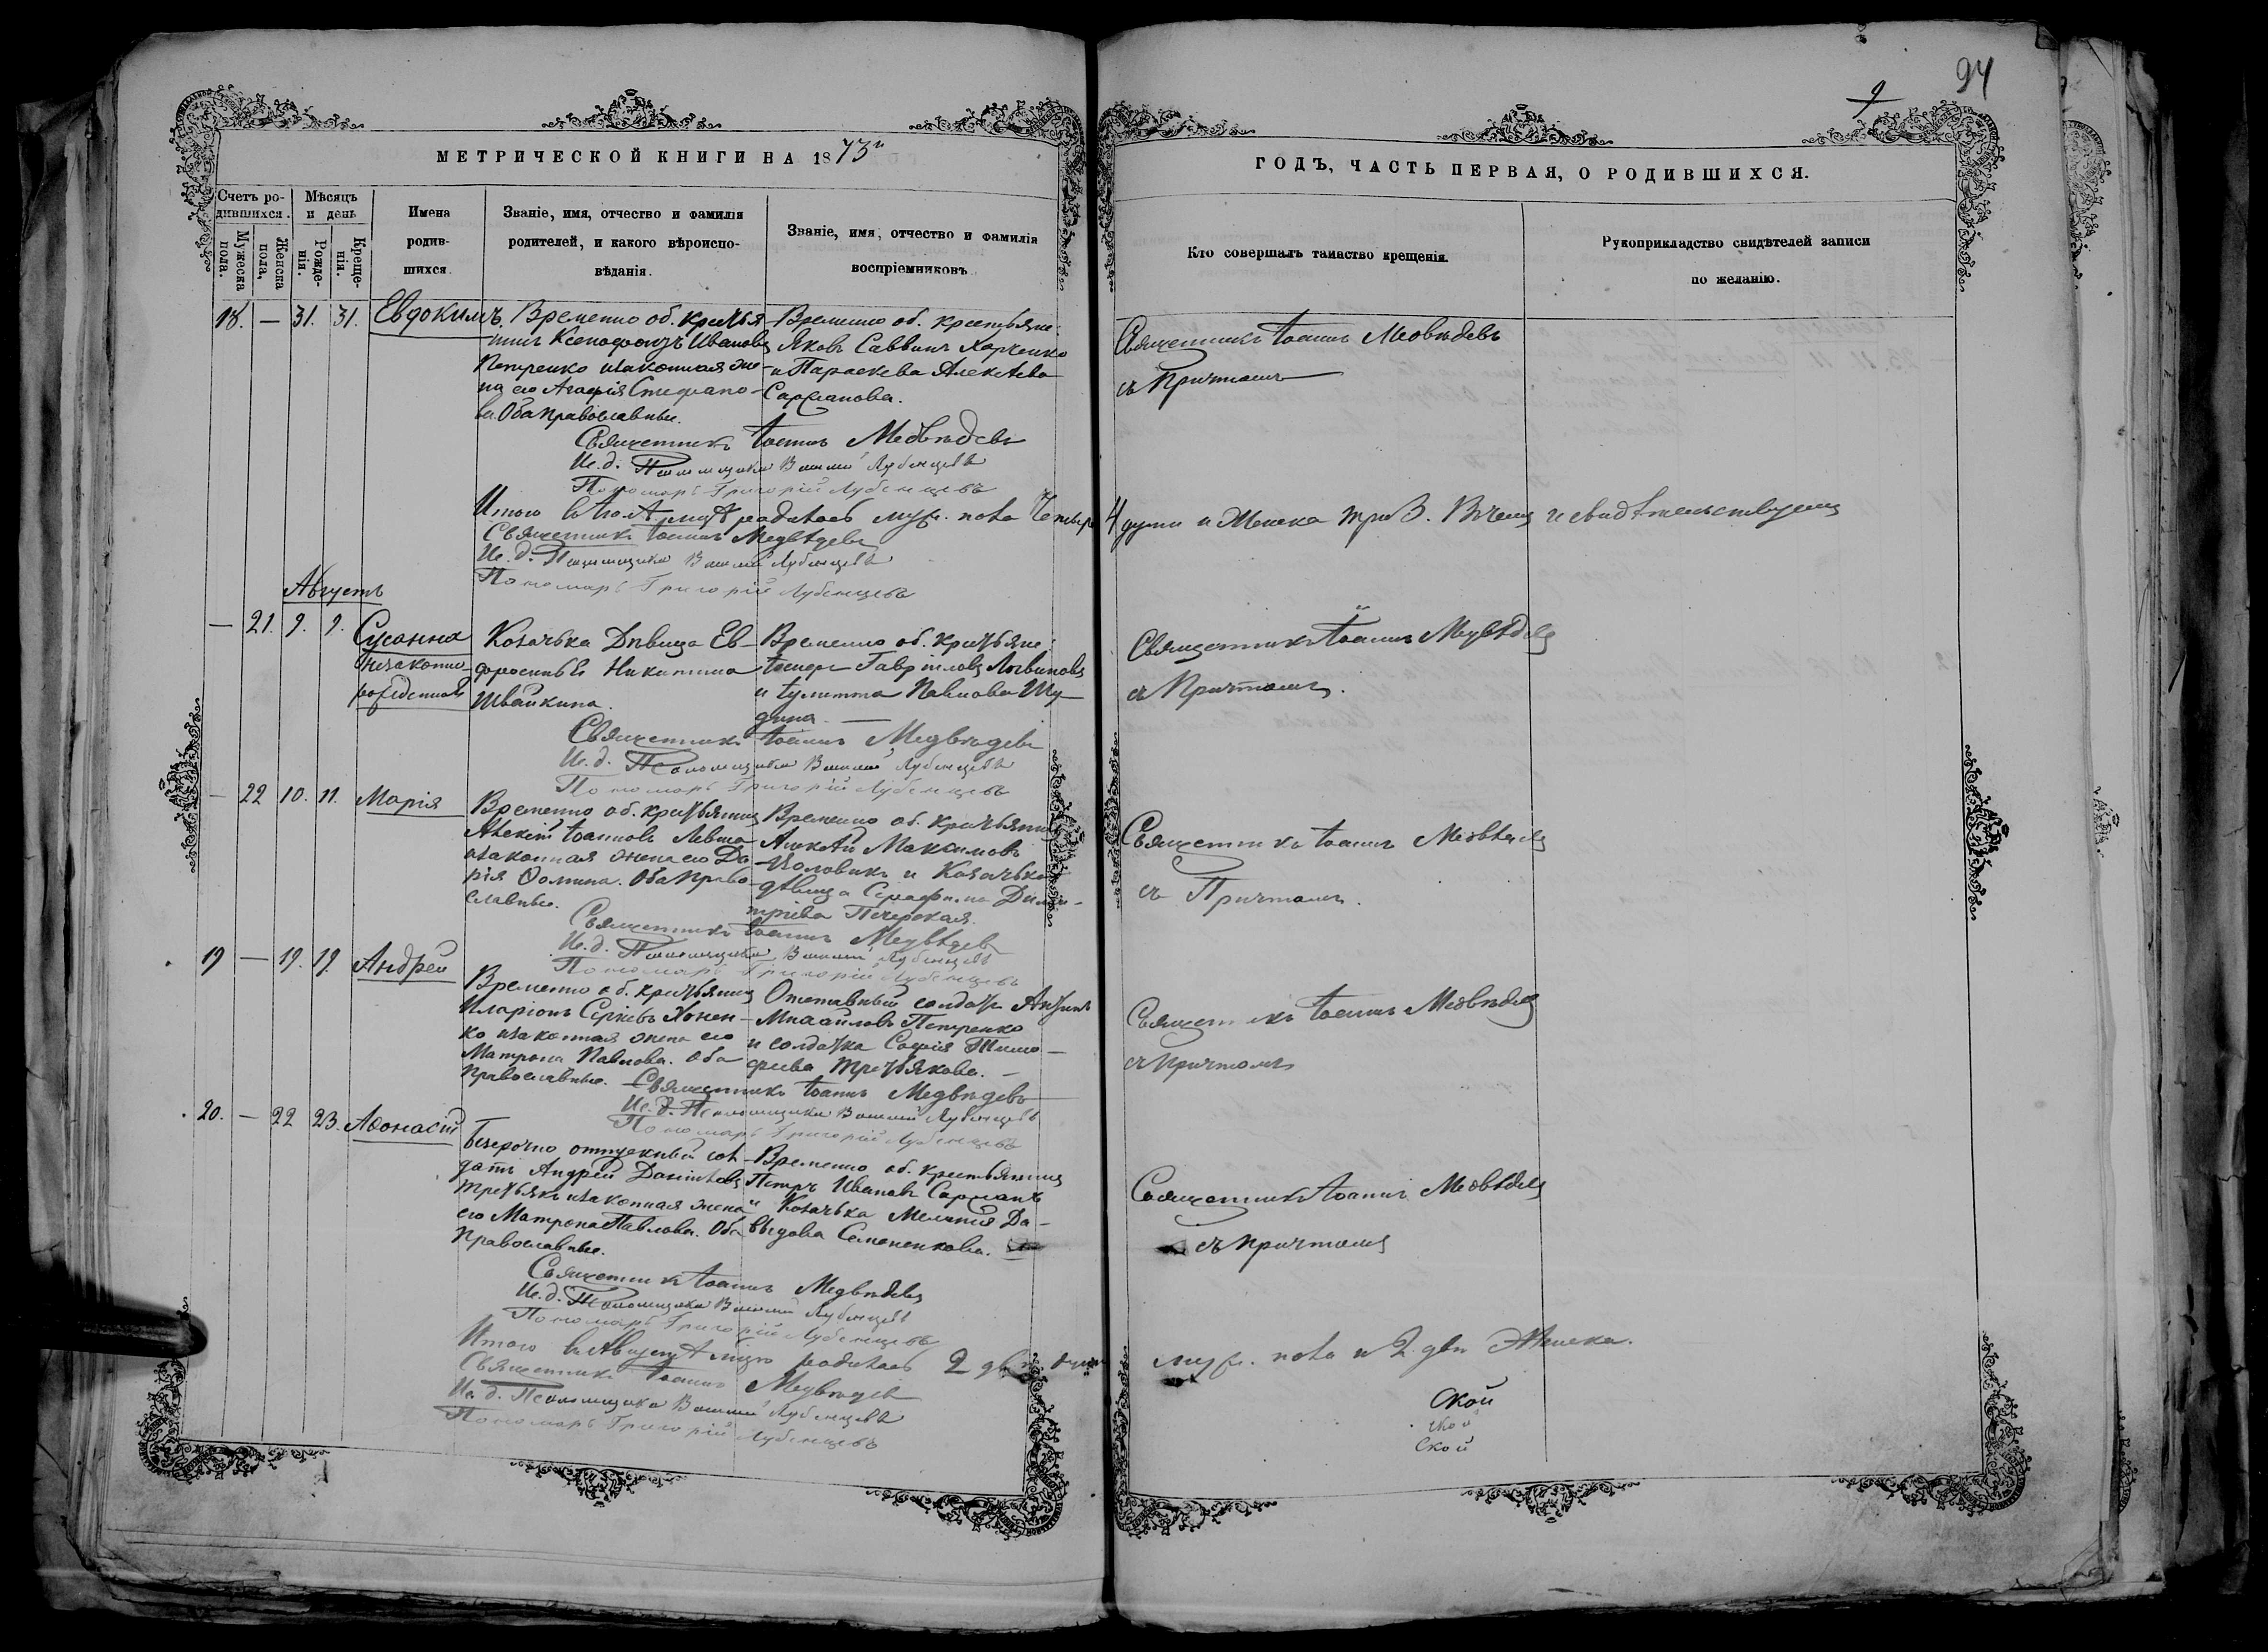 94
9
МЕТРИЧЕСКОЙ КНИГИ НА 1873й
ГОДЪ, ЧАСТЬ ПЕРВАЯ, О РОДИВШИХСЯ.
Счетъ родившихся.
Мужеска пола.
Женска пола.
Мѣсяцъ и день
Рожденія.
Крещенія.
Имена родившихся.
Званіе, имя, отчество и фамилія родителей, и какого вѣроисповѣданія.
Званіе, имя, отчество и фамилія воспріемниковъ.
Кто совершалъ таинство крещенія.
Рукоприкладство свидѣтелей записи по желанію.
18. — 31. 31. Евдокимъ.
Временно об. крестья-
нинъ Ксенофонтъ Ивановъ
Петренко и законная же-
на его Агафія Стефано-
ва. Оба православные.
Временно об. крестьяне:
Яковъ Саввинъ Харченко
и Параскева Алексѣева
Сарсланова.
Священникъ Іоаннъ Медвѣдевъ
съ Причтомъ
Священникъ Іоаннъ Медвѣдевъ
И. д. Псаломщика Василій Лубенцевъ
Пономарь Григорій Лубенцевъ
Итого въ Іюлѣ родилось муж. пола Четыре
4 души и Женска три 3. В чемъ и свидѣтельствуемъ
Священникъ Іоаннъ Медвѣдевъ
И. д. Псаломщика Василій Лубенцевъ
Пономарь Григорій Лубенцевъ
Августъ
— 21. 9. 9. Сусанна
незаконно-
рожденная
Козачька Дѣвица Ев-
фросинья Никитина
Швайкина.
Временно об. крестьяне:
Гавріиловъ Литвиновъ
и Іулитта Павлова Шу-
дина —
Священникъ Іоаннъ Медвѣдевъ
съ Причтомъ.
Священникъ Іоаннъ Медвѣдевъ
И. д. Псаломщика Василій Лубенцевъ
Пономарь Григорій Лубенцевъ
— 22 10. 11. Марія
Временно об. крестьянинъ
Алексій Іоанновъ Левша
и законная жена его Да-
рія Фомина. Оба право-
славные.
Временно об. крестьянинъ
Алексѣй Максимовъ
Чоловикъ и Козачька
дѣвица Серафима Дими-
тріева Печерская.
Священникъ Іоаннъ Медвѣдевъ
съ Причтомъ.
Священникъ Іоаннъ Медвѣдевъ
И. д. Псаломщика Василій Лубенцевъ
Пономарь Григорій Лубенцевъ
19 — 19. 19. Андрей
Временно об. крестьянинъ
Иларіонъ Сергіевъ Хонен-
ко и законная жена его
Матрона Павлова. Оба
православные.
Отставный солдатъ
Михаиловъ Петренко
и солдатка Софія Тимо-
феева Третьякова. —
Священникъ Іоаннъ Медвѣдевъ
съ причтомъ
Священникъ Іоаннъ Медвѣдевъ
И. д. Псаломщика Василій Лубенцевъ
Пономарь Григорій Лубенцевъ
20. — 22 23. Афонасій
Безсрочно отпускный сол-
датъ Андрей Даниловъ
Третьякъ и законная жена
его Матрона Павлова. Оба
Православные.
Временно об. крестьянинъ
Петръ Ивановъ Сарсланъ
и Козачька Меланія Да-
выдова Семененкова.
Священникъ Іоаннъ Медвѣдевъ
съ причтомъ
Священникъ Іоаннъ Медвѣдевъ
И. д. Псаломщика Василій Лубенцевъ
Пономарь Григорій Лубенцевъ
Итого въ Августѣ родилось 2 двѣ души
муж. пола и 2 двѣ Женска.
Священникъ Іоаннъ Медвѣдевъ
И. д. Псаломщика Василій Лубенцевъ
Пономарь Григорій Лубенцевъ
ской
ской
ской